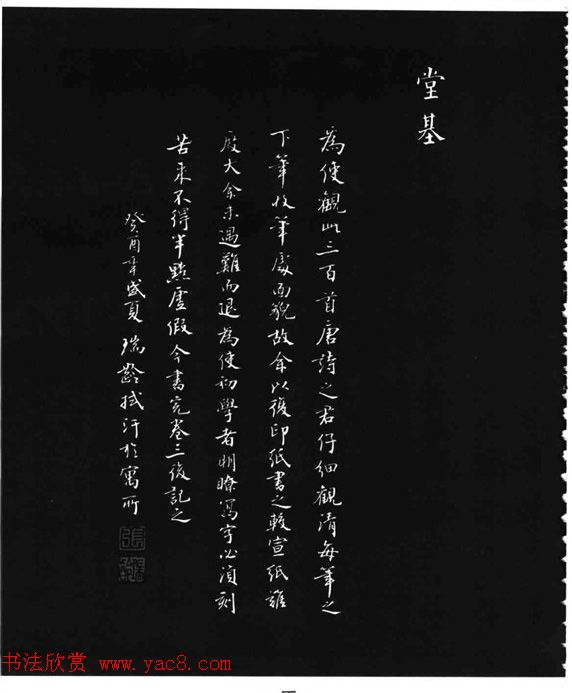 堂基
為使觀此三百首唐詩之君仔細觀清每筆之
下筆收筆處面貌故余以復印紙書之較宣紙難
度大余未遇難而退為使初學者明瞭寫字必須刻
苦來不得半點虛假今書完卷三後記之
癸酉年盛夏瑞齡拭汗於寓所
書法欣赏 www.yac8.com